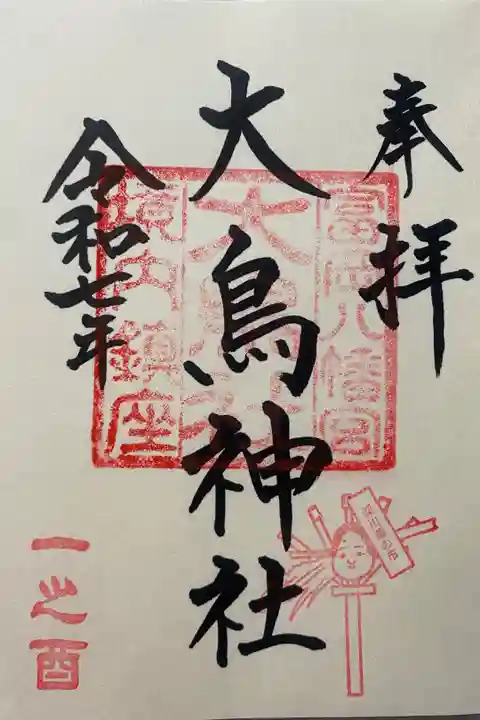 奉拝
富岡八幡宮
大鳥神社
境内鎮座
令和七年
一之酉